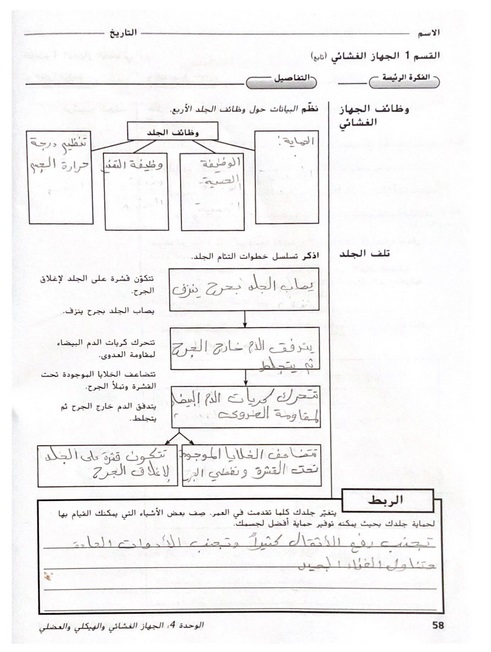 الاسم ــــــــ التاريخ ــــــــ
القسم 1 الجهاز الغشائي (تابع)
الفكرة الرئيسة التفاصيل
وظائف الجهاز
الغشائي
نظّم البيانات حول وظائف الجلد الأربع.
وظائف الجلد
الحماية:
الوظيفة
الحسية
وظيفة
تنظيم درجة
حرارة الجسم
تلف الجلد
اذكر تسلسل خطوات التئام الجلد.
تتكوّن قشرة على الجلد لإغلاق
الجرح.
يصاب الجلد بجرح ينزف.
تتحرك كريات الدم البيضاء
لمقاومة العدوى.
تتضاعف الخلايا الموجودة تحت
القشرة وتملأ الجرح.
يتدفق الدم خارج الجرح ثم
يتجلط.
يصاب الجلد بجرح ينزف
يتدفق الدم خارج الجرح
ثم يتجلط
تتحرك كريات الدم البيضا
لمقاومة العدوى
تتضاعف الخلايا الموجود
تحت القشرة
تتكون قشرة على الجلد
لإغلاق الجرح
الربط
يتغيّر جلدك كلما تقدمت في العمر. صِف بعض الأشياء التي يمكنك القيام بها
لحماية جلدك بحيث يمكنه توفير حماية أفضل لجسمك.
تجنب رفع الأثقال كثيراً وتجنب الأدوات الحادة
الغذاء الجيد
58
الوحدة 4: الجهاز الغشائي والهيكلي والعضلي